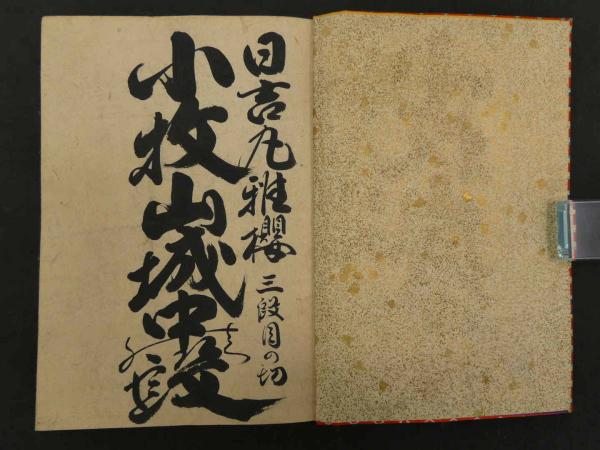 日吉丸稚櫻 三段目の切
小牧山城中之段